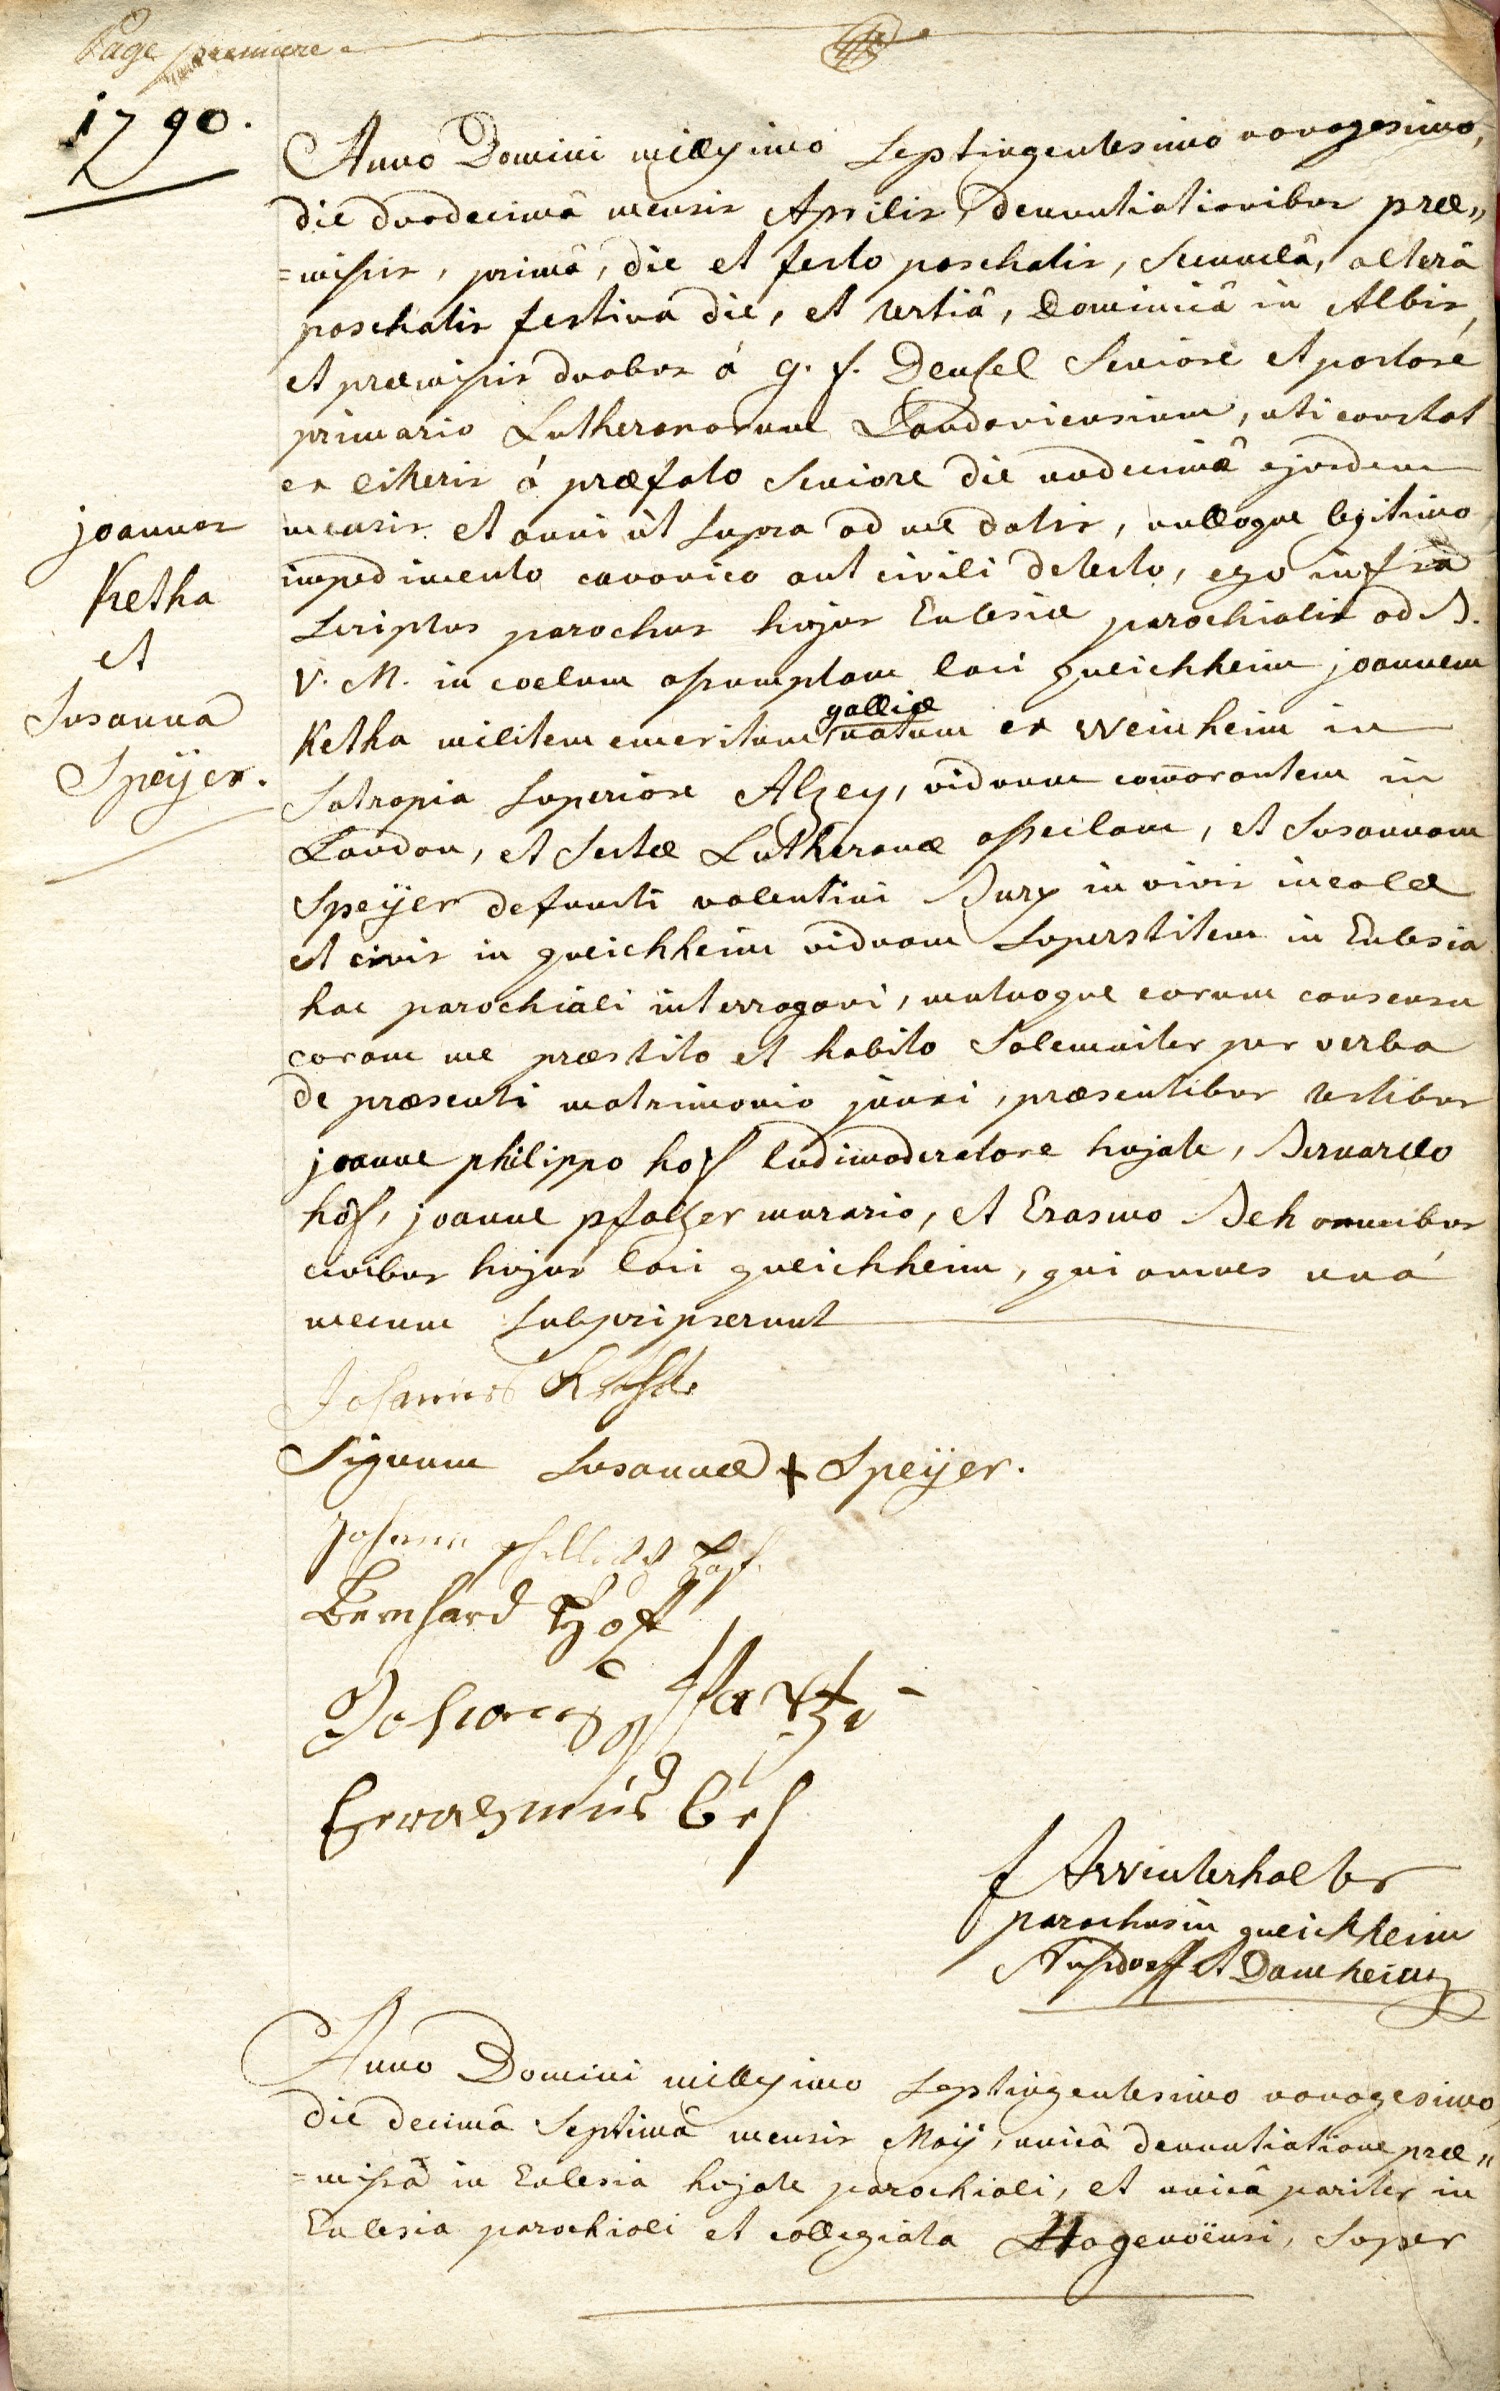 Page premiere.
1790.
Anno Domini millesimo Septingentesimo nonagesimo,
die duodecimâ mensis Aprilis, denuntiationibus præ„
=missis, primâ, die et festo paschatis, secundâ, alterâ
paschatis festiva die, et tertiâ, Dominicâ in Albis,
et præmissis duabus á g. f. Deutzel Seniore et pastore
primario Lutheranorum Landaviensium, uti constat
ex litteris á præfato Seniore die undecimâ ejusdem
mensis et anni ut supra ad me datis, nulloque legitimo
impedimento canonico aut civili detecto, ego infra
scriptus parochus hujus Eclesiæ parochialis ad B.
V. M. in coelum assumptam loci queichheim joannem
Ketha militem emeritum galliæ natum ex Weinheim in
Satrapia superiore Alzey, viduum com̄orantem in
Landau, et Sectæ Lutheranæ asseclam, et Susannam
Speÿer defuncti valentini Burx in vivis incolæ
et civis in queichheim viduam superstitem in Eclesia
hac parochiali interrogavi, mutuoque eorum consensu
coram me præstito et habito Solemniter per verba
de præsenti matrimonio junxi, præsentibus testibus
joanne philippo hoff ludimoderatore hujate, Bernardo
hoff, joanne pfaltzer murario, et Erasmo Beh omnibus
civibus hujus loci queichheim, qui omnes unâ
mecum subscripserunt
joannes
Ketha
et
Susanna
Speÿer.
Johannes
Signum Susannæ + Speÿer.
Johann
Bernhard Hoff
Johannes
Erasmus Beh
f A Winterhalter
parochus in queichheim
Nusdorff et Damheim
Anno Domini millesimo Septingentesimo nonagesimo,
die decimâ Septimâ mensis Maÿ, unicâ denuntiatione præ„
=missâ in Eclesia hujate parochiali, et unicâ pariter in
Eclesia parochiali et collegiata Hagenoënsi, super